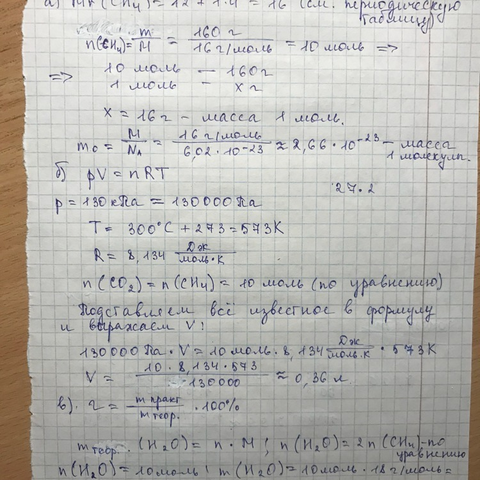 а) Mr(CH₄) = 12 + 1·4 = 16 (см. периодическую
таблицу)
n(CH₄) = m/M = 160 г / 16 г/моль = 10 моль =>
=> 10 моль — 160 г
1 моль — x г
x = 16 г – масса 1 моль.
m₀ = M/Nₐ = 16 г/моль / 6,02 · 10⁻²³ ≈ 2,66 · 10⁻²³ – масса
1 молекулы.
б) pV = nRT
27·2
p = 130 кПа = 130000 Па
T = 300°C + 273 = 573K
R = 8,134 Дж/моль·К
n(CO₂) = n(CH₄) = 10 моль (по уравнению)
Подставляем всё известное в формулу
и выражаем V:
130000 Па · V = 10 моль · 8,134 Дж/моль·К · 573K
V = 10 · 8,134 · 573 / 130000 ≈ 0,36 л
в). η = m практ / m теор. · 100%
m теор. (H₂O) = n · M; n(H₂O) = 2n(CH₄) – по
уравнению
n(H₂O) = 10 моль; m(H₂O) = 10 моль · 18 г/моль =